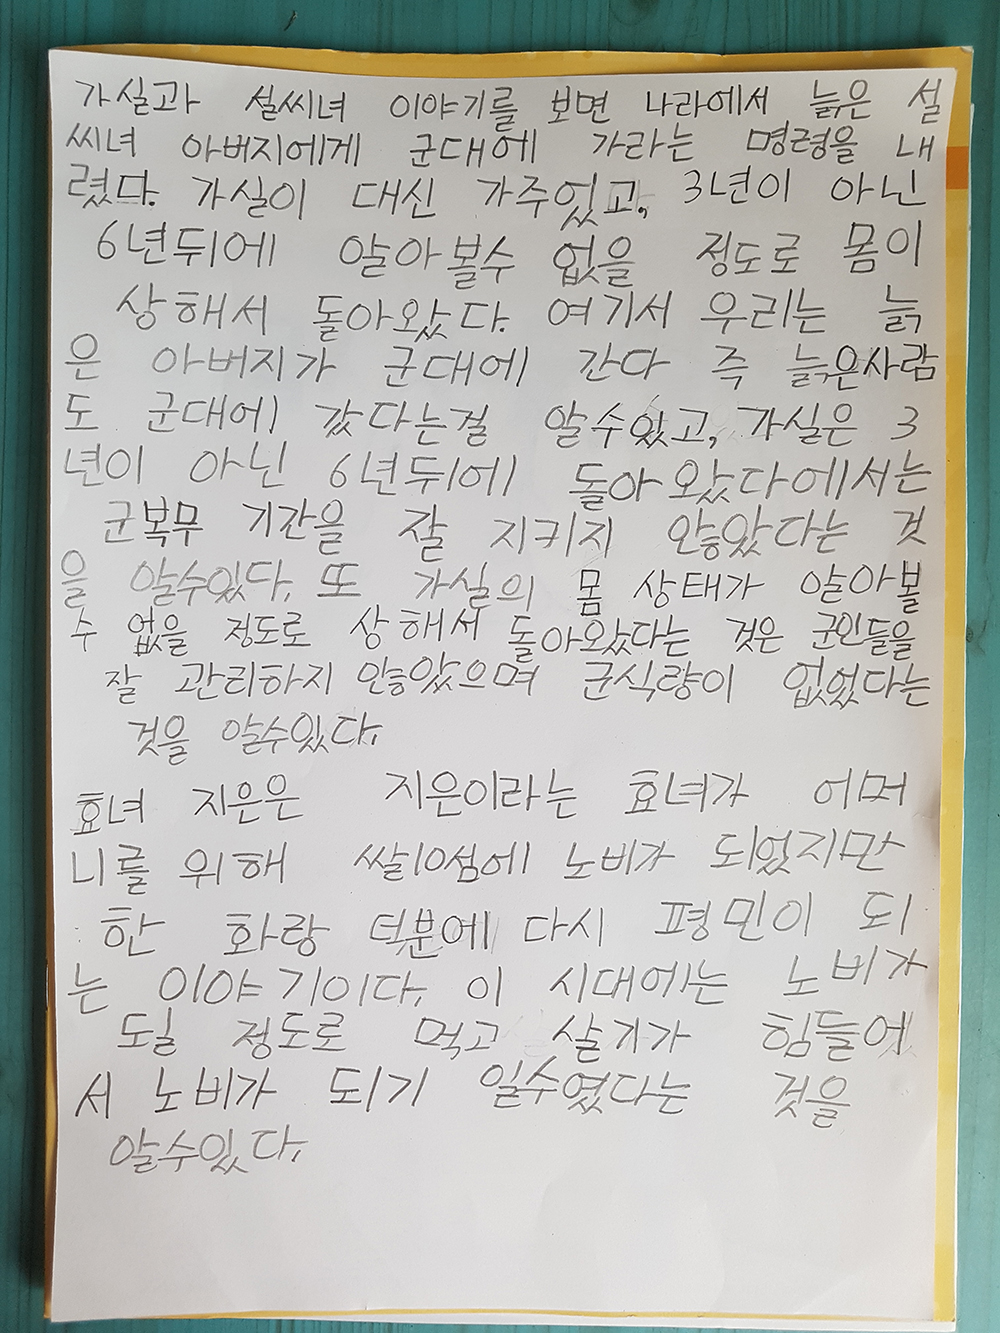 가실과 설씨녀 이야기를 보면 나라에서 늙은 설
씨녀 아버지에게 군대에 가라는 명령을 내
렸다. 가실이 대신 가주었고, 3년이 아닌
6년뒤에 알아볼수 없을 정도로 몸이
상해서 돌아왔다. 여기서 우리는 늙
은 아버지가 군대에 간다 즉 늙은사람
도 군대에 갔다는걸 알수있고, 가실은 3
년이 아닌 6년뒤에 돌아왔다에서는
군복무 기간을 잘 지키지 않았다는 것
을 알수있다. 또 가실의 몸 상태가 알아볼
수 없을 정도로 상해서 돌아왔다는 것은 군인들을
잘 관리하지 않았으며 군식량이 없었다는
것을 알수있다.
효녀 지은은 지은이라는 효녀가 어머
니를 위해 쌀10섬에 노비가 되었지만
한 화랑 덕분에 다시 평민이 되
는 이야기이다. 이 시대에는 노비가
될 정도로 먹고 살기가 힘들어
서 노비가 되기 일수였다는 것을
알수있다.